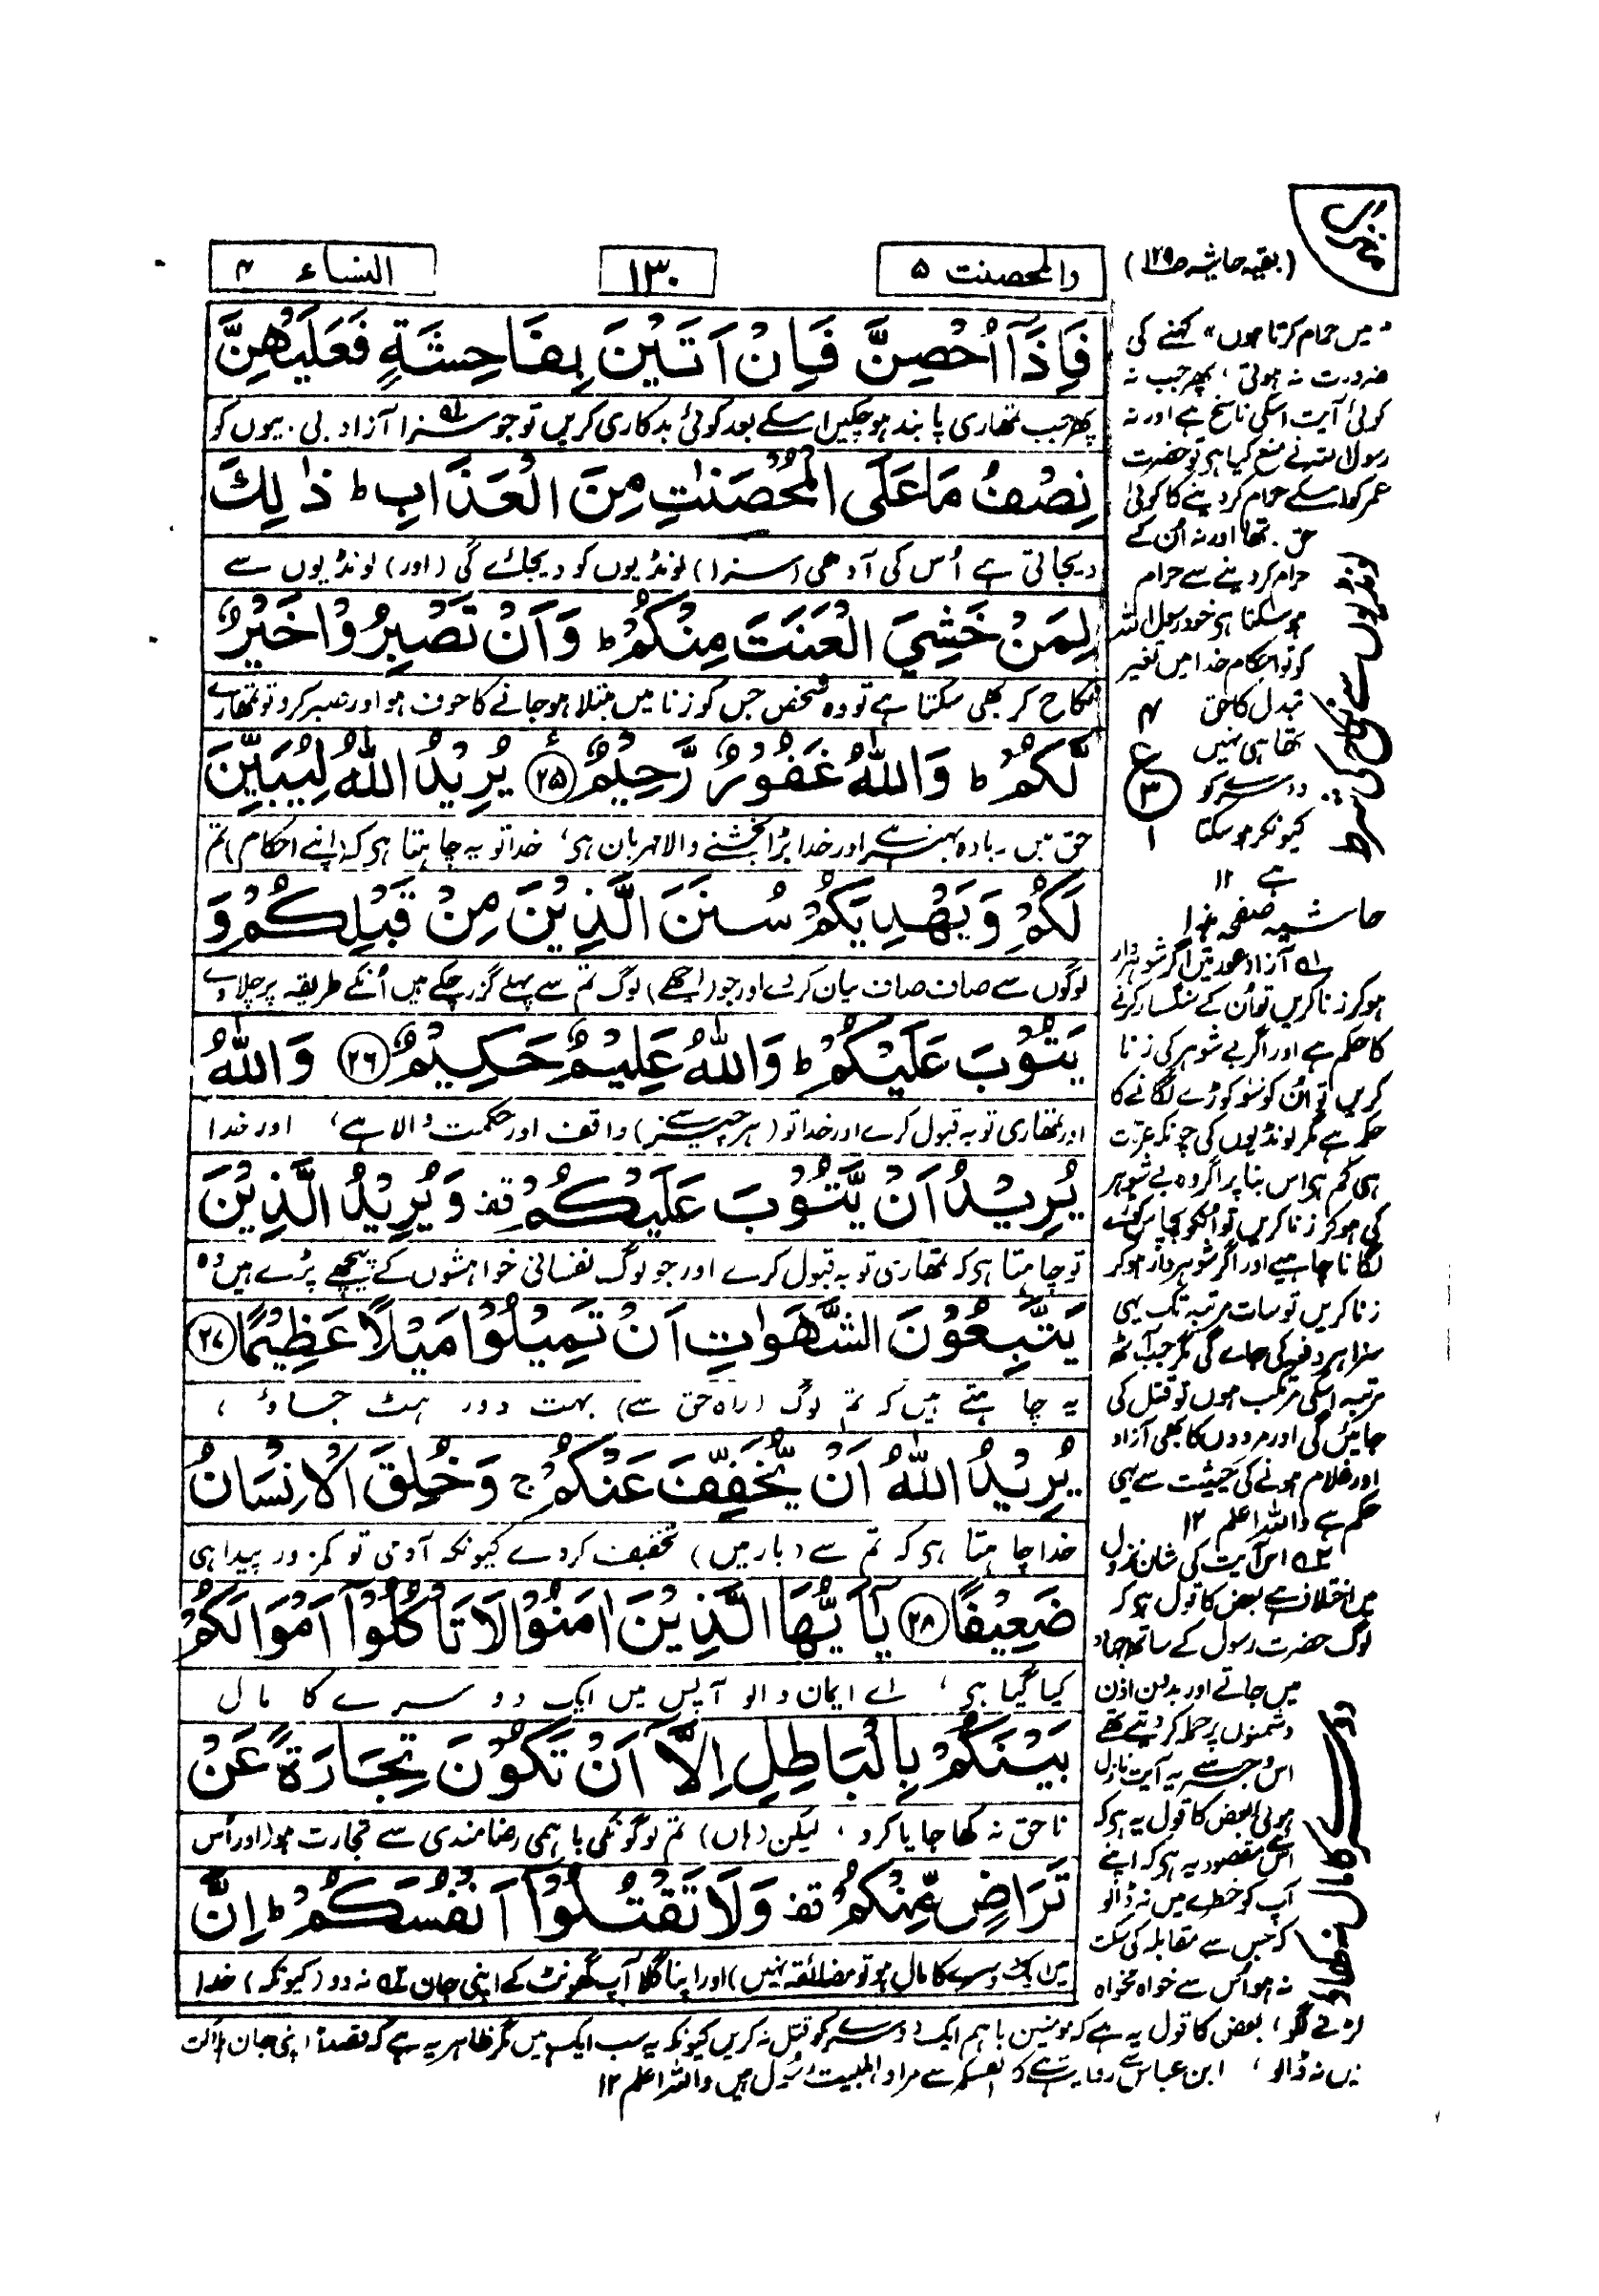 والمحصنت ۵
۱۳۰
النساء ۴
فَاِذَآ اُحْصِنَّ فَاِنْ اَتَيْنَ بِفَاحِشَةٍ فَعَلَيْهِنَّ
پھر جب تمھاری پابند ہو چکیں اسکے بعد کوئی بدکاری کریں تو جو سزا آزاد بی بیوں کو
نِصْفُ مَا عَلَى الْمُحْصَنٰتِ مِنَ الْعَذَابِ ط ذٰلِكَ
دیجاتی ہے اُس کی آدھی (سزا) لونڈیوں کو دیجائے گی (اور) لونڈیوں سے
لِمَنْ خَشِيَ الْعَنَتَ مِنْكُمْ ط وَاَنْ تَصْبِرُوْا خَيْرٌ
نکاح کر بھی سکتا ہے تو وہ شخص جس کو زنا میں مبتلا ہو جانے کا خوف ہو اور صبر کرو تو تمھارے
لَّكُمْ ط وَاللّٰهُ غَفُوْرٌ رَّحِيْمٌ ۲۵ يُرِيْدُ اللّٰهُ لِيُبَيِّنَ
حق میں زیادہ بہتر ہے اور خدا بڑا بخشنے والا مہربان ہی، خدا تو یہ چاہتا ہی کہ (اپنے) احکام تم
لَكُمْ وَيَهْدِيَكُمْ سُنَنَ الَّذِيْنَ مِنْ قَبْلِكُمْ وَ
لوگوں سے صاف صاف بیان کردے اور جو (اچھے) لوگ تم سے پہلے گزر چکے ہیں اُنکے طریقہ پر چلادے
يَتُوْبَ عَلَيْكُمْ ط وَاللّٰهُ عَلِيْمٌ حَكِيْمٌ ۲۶ وَاللّٰهُ
اور تمھاری توبہ قبول کرے اور خدا تو (ہر چیز سے) واقف اور حکمت والا ہے، اور خدا
يُرِيْدُ اَنْ يَّتُوْبَ عَلَيْكُمْ قف وَيُرِيْدُ الَّذِيْنَ
تو چاہتا ہی کہ تمھاری توبہ قبول کرے اور جو لوگ نفسانی خواہشوں کے پیچھے پڑے ہیں وہ
يَتَّبِعُوْنَ الشَّهَوٰتِ اَنْ تَمِيْلُوْا مَيْلًا عَظِيْمًا ۲۷
یہ چاہتے ہیں کہ تم لوگ (راہ حق سے) بہت دور ہٹ جاؤ،
يُرِيْدُ اللّٰهُ اَنْ يُّخَفِّفَ عَنْكُمْ ج وَخُلِقَ الْاِنْسَانُ
خدا چاہتا ہی کہ تم سے (بار میں) تخفیف کردے کیونکہ آدمی تو کمزور پیدا ہی
ضَعِيْفًا ۲۸ يٰٓاَيُّهَا الَّذِيْنَ اٰمَنُوْا لَا تَاْكُلُوْٓا اَمْوَالَكُمْ
کیا گیا ہی، اے ایمان والو آپس میں ایک دوسرے کا مال
بَيْنَكُمْ بِالْبَاطِلِ اِلَّآ اَنْ تَكُوْنَ تِجَارَةً عَنْ
ناحق نہ کھا جایا کرو، لیکن (ہاں) تم لوگونکی باہمی رضامندی سے تجارت ہو (اور اُس
تَرَاضٍ مِّنْكُمْ قف وَلَا تَقْتُلُوْٓا اَنْفُسَكُمْ ط اِنَّ
میں ایک دوسرے کا مال ہو تو مضائقہ نہیں) اور اپنا گلا آپ گھونٹ کے اپنی جان نہ دو (کیونکہ) خدا
(بقیہ حاشیہ ص۱۲۹)
"میں حرام کرتا ہوں" کہنے کی
ضرورت نہ ہوتی، پھر جب نہ
کوئی آیت اسکی ناسخ ہے اور نہ
رسول اللہ نے منع کیا ہی تو حضرت
عمر کو اسکے حرام کردینے کا کوئی
حق تھا اور نہ اُن کے
حرام کردینے سے حرام
ہو سکتا ہی خود رسول اللہ
کو تو احکام خدا میں تغیر
تبدل کا حق
تھا ہی نہیں
دوسرے کو
کیونکر ہو سکتا
ہے ۱۲
۴
ع
۳
۱
لونڈیوں سے نکاح کی شرط
حاشیہ صفحہ ہذا
۱؎ آزاد عورتیں اگر شوہردار
ہو کر زنا کریں تو اُن کے سنگسار کرنے
کا حکم ہے اور اگر بے شوہر کی زنا
کریں تو اُن کو سو کوڑے لگانے کا
حکم ہے مگر لونڈیوں کی چونکہ عزت
ہی کم ہی اس بنا پر اگر وہ بے شوہر
کی ہو کر زنا کریں تو اُنکو پچاس کوڑے
لگانا چاہیے اور اگر شوہردار ہو کر
زنا کریں تو سات مرتبہ تک یہی
سزا ہر دفعہ کی جاے گی مگر جب آٹھ
مرتبہ اسکی مرتکب ہوں تو قتل کی
جائیں گی اور مردوں کا بھی آزاد
اور غلام ہونے کی حیثیت سے یہی
حکم ہے واللہ اعلم ۱۲
۲؎ اس آیت کی شان نزول
میں اختلاف ہے بعض کا قول ہی کہ
لوگ حضرت رسول کے ساتھ جہاد
میں جاتے اور بدون اذن
دشمنوں پر حملہ کر دیتے تھے
اس وجہ سے یہ آیت نازل
ہوئی بعض کا قول یہ ہی کہ
اس سے مقصود یہ ہی کہ اپنے
آپ کو خطرے میں نہ ڈالو
کہ جس سے مقابلہ کی سکت
نہ ہو اُس سے خواہ مخواہ
دوسرے کا مال نہ کھاؤ
لڑنے لگو، بعض کا قول یہ ہے کہ مومنین باہم ایک دوسرے کو قتل نہ کریں کیونکہ یہ سب ایک ہیں مگر ظاہر یہ ہے کہ قصداً اپنی جان ہلاکت
میں نہ ڈالو، ابن عباس سے روایت ہے کہ انفسکم سے مراد اہلبیت رسول ہیں واللہ اعلم ۱۲